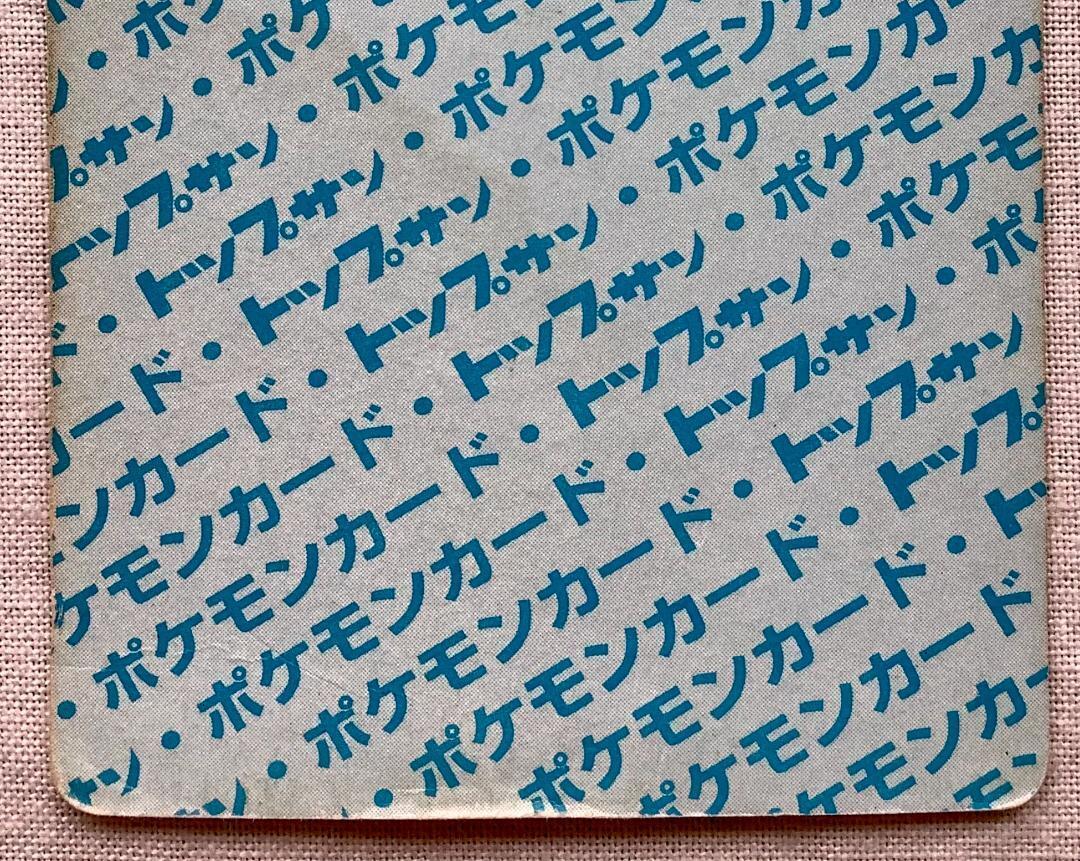 ン・ポ
プサン・ポケ
トップサン・ポケモ
ド・トップサン・ポケモン
カード・トップサン・ポケモンカ
ンカード・トップサン・ポケモンカ
ケモンカード・トップサン・ポケモンカ
・ポケモンカード・トップサン・ポケモ
サン・ポケモンカード・トップサン・ポ
ン・ポケモンカード・トップサン
・ポケモンカード・トップ
ポケモンカード・ト
ポケモンカード
ケモンカー
モ